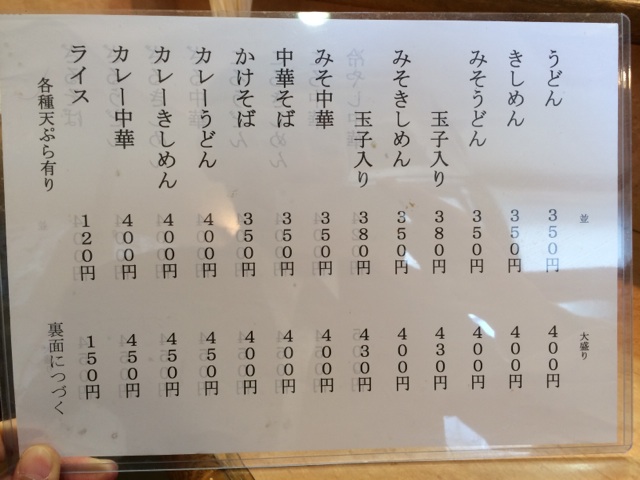 並
大盛り
うどん 350円 400円
きしめん 350円 400円
みそうどん 350円 400円
玉子入り 380円 430円
みそきしめん 350円 400円
玉子入り 380円 430円
みそ中華 350円 400円
中華そば 350円 400円
かけそば 350円 400円
カレーうどん 400円 450円
カレーきしめん 400円 450円
カレー中華 400円 450円
ライス 120円 150円
各種天ぷら有り
裏面につづく